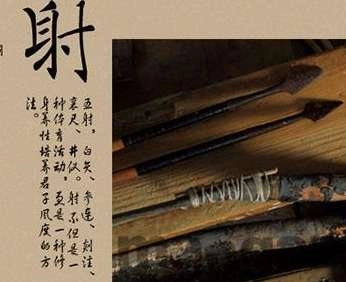 射
五射，白矢、参连、剡注、
襄尺、井仪。射不但是一
种体育活动，更是一种修
身养性培养君子风度的方
法。